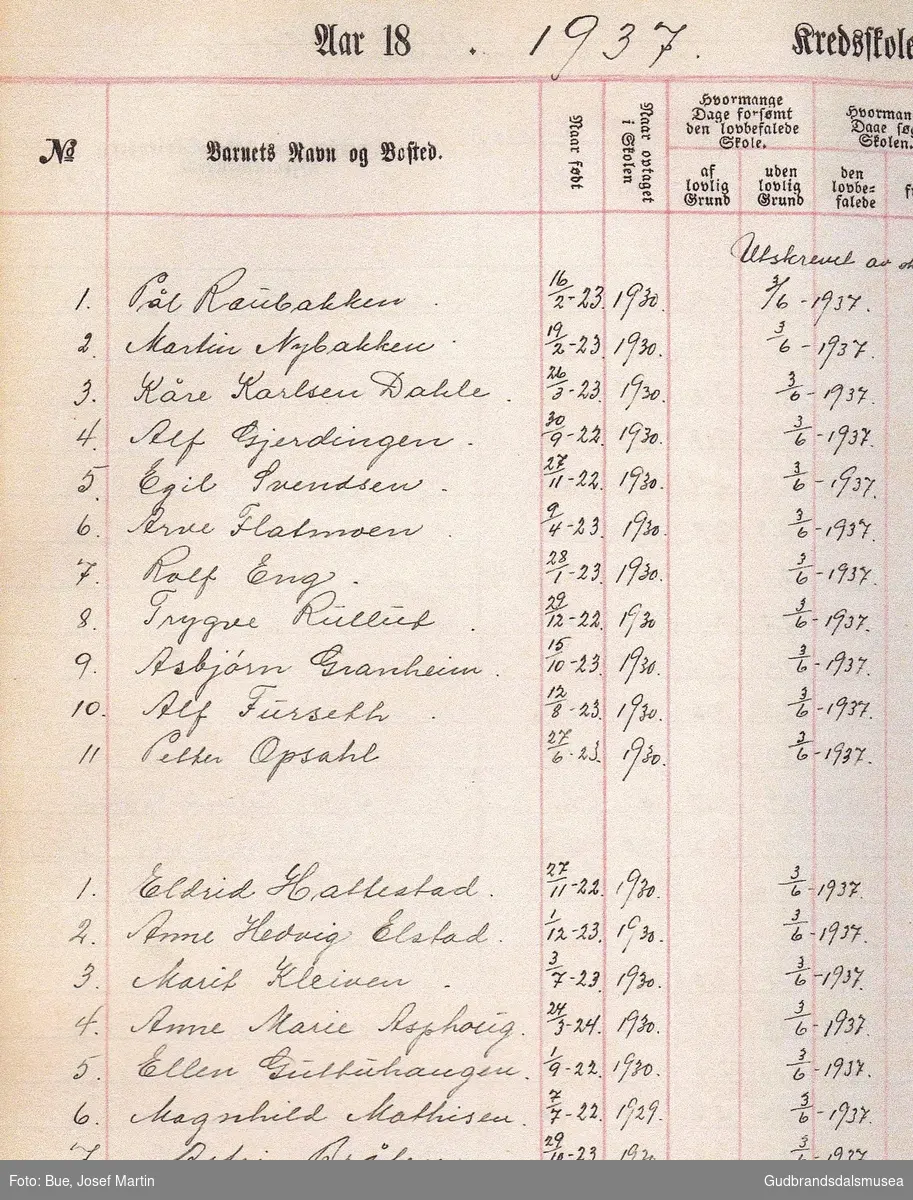 Aar 18 . 1937. Kredsskole
No
Barnets Navn og Bosted.
Naar født
Naar optaget i Skolen
Hvormange Dage forsømt den lovbefalede Skole.
af lovlig Grund
uden lovlig Grund
Hvorman
Dage søg
Skolen.
den lovbe= falede
Utskrevet av
1. Pål Raubakken 16/2-23. 1930. 3/6-1937.
2. Martin Nybakken 19/2-23. 1930. 3/6-1937.
3. Kåre Karlsen Dahle. 26/3-23. 1930. 3/6-1937.
4. Alf Gjerdingen. 30/9-22. 1930. 3/6-1937.
5. Egil Svendsen. 27/11-22. 1930. 3/6-1937.
6. Arve Flatmoen. 9/4-23. 1930. 3/6-1937.
7. Rolf Eng. 28/1-23. 1930. 3/6-1937.
8. Trygve Rullut. 29/12-22. 1930 3/6-1937.
9. Asbjørn Granheim. 15/10-23. 1930. 3/6-1937.
10. Alf Furseth. 12/8-23. 1930. 3/6-1937.
11 Petter Opsahl 27/6-23. 1930. 3/6-1937.
1. Eldrid Hattestad. 27/11-22. 1930. 3/6-1937.
2. Anne Hedvig Elstad. 1/12-23. 1930. 3/6-1937.
3. Marit Kleiven. 3/7-23. 1930. 3/6-1937.
4. Anne Marie Asphoug. 24/3-24. 1930. 3/6-1937.
5. Ellen Guttuhaugen. 1/9-22. 1930. 3/6-1937.
6. Magnhild Mathisen. 7/7-22. 1929. 3/6-1937.
7. 29/10-23 1930 3/6-1937
Foto: Bue, Josef Martin
Gudbrandsdalsmusea